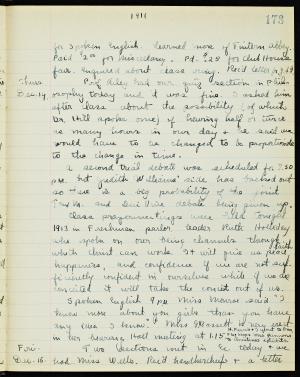 1911
173
for Spoken English. Learned more of Tintern Abbey.
Paid $2.00 for Missionary. Pd. $.25 for Club House
fair. Inquired about class ring. Rec'd letter
Thurs. Prof. Riley had our quiz section in Phil-
Dec. 14 osophy today and it was fine. I asked him
after class about the possibility (of which
Dr. Hill spoke once) of having half or twice
as many hours in our day & he said we
would have to be changed to be proportionate
to the change in time.
A second trial debate was scheduled for 7:30
P.M. but Judith Williams' side has backed out
so there is a big probability of the joint
debate being given up.
Class prayermeetings were held tonight.
1913 in Freshman parlor, leader Ruth Holliday
who spoke on our being channels through
which Christ can work. It will give us faith
happiness, and confidence if we are not suf-
ficiently confident in ourselves while if we are
conceited it will take the conceit out of us.
Spoken English I P.M. Miss Monroe said "I
know more about you girls than you have
any idea I know." Miss is very
in her Hall meeting at 1.15
Fri. Two sections met in Ec. today & we
Dec. 15. had Miss Wells. Rec'd handkerchief & a letter